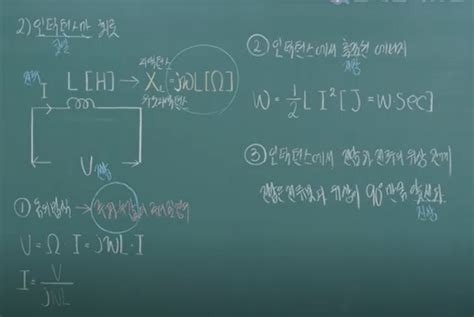 2) 인덕턴스만의 회로
I L[H] → X_L = jωL[Ω]
V
①
V = Ω · I = jωL · I
I = V / jωL
② 인덕턴스에서 축적된 에너지
W = 1/2 L I² [J = W sec]
③ 인덕턴스에서 전압과 전류의 위상 관계
전압은 전류보다 위상이 90° 만큼 앞선다.
진상